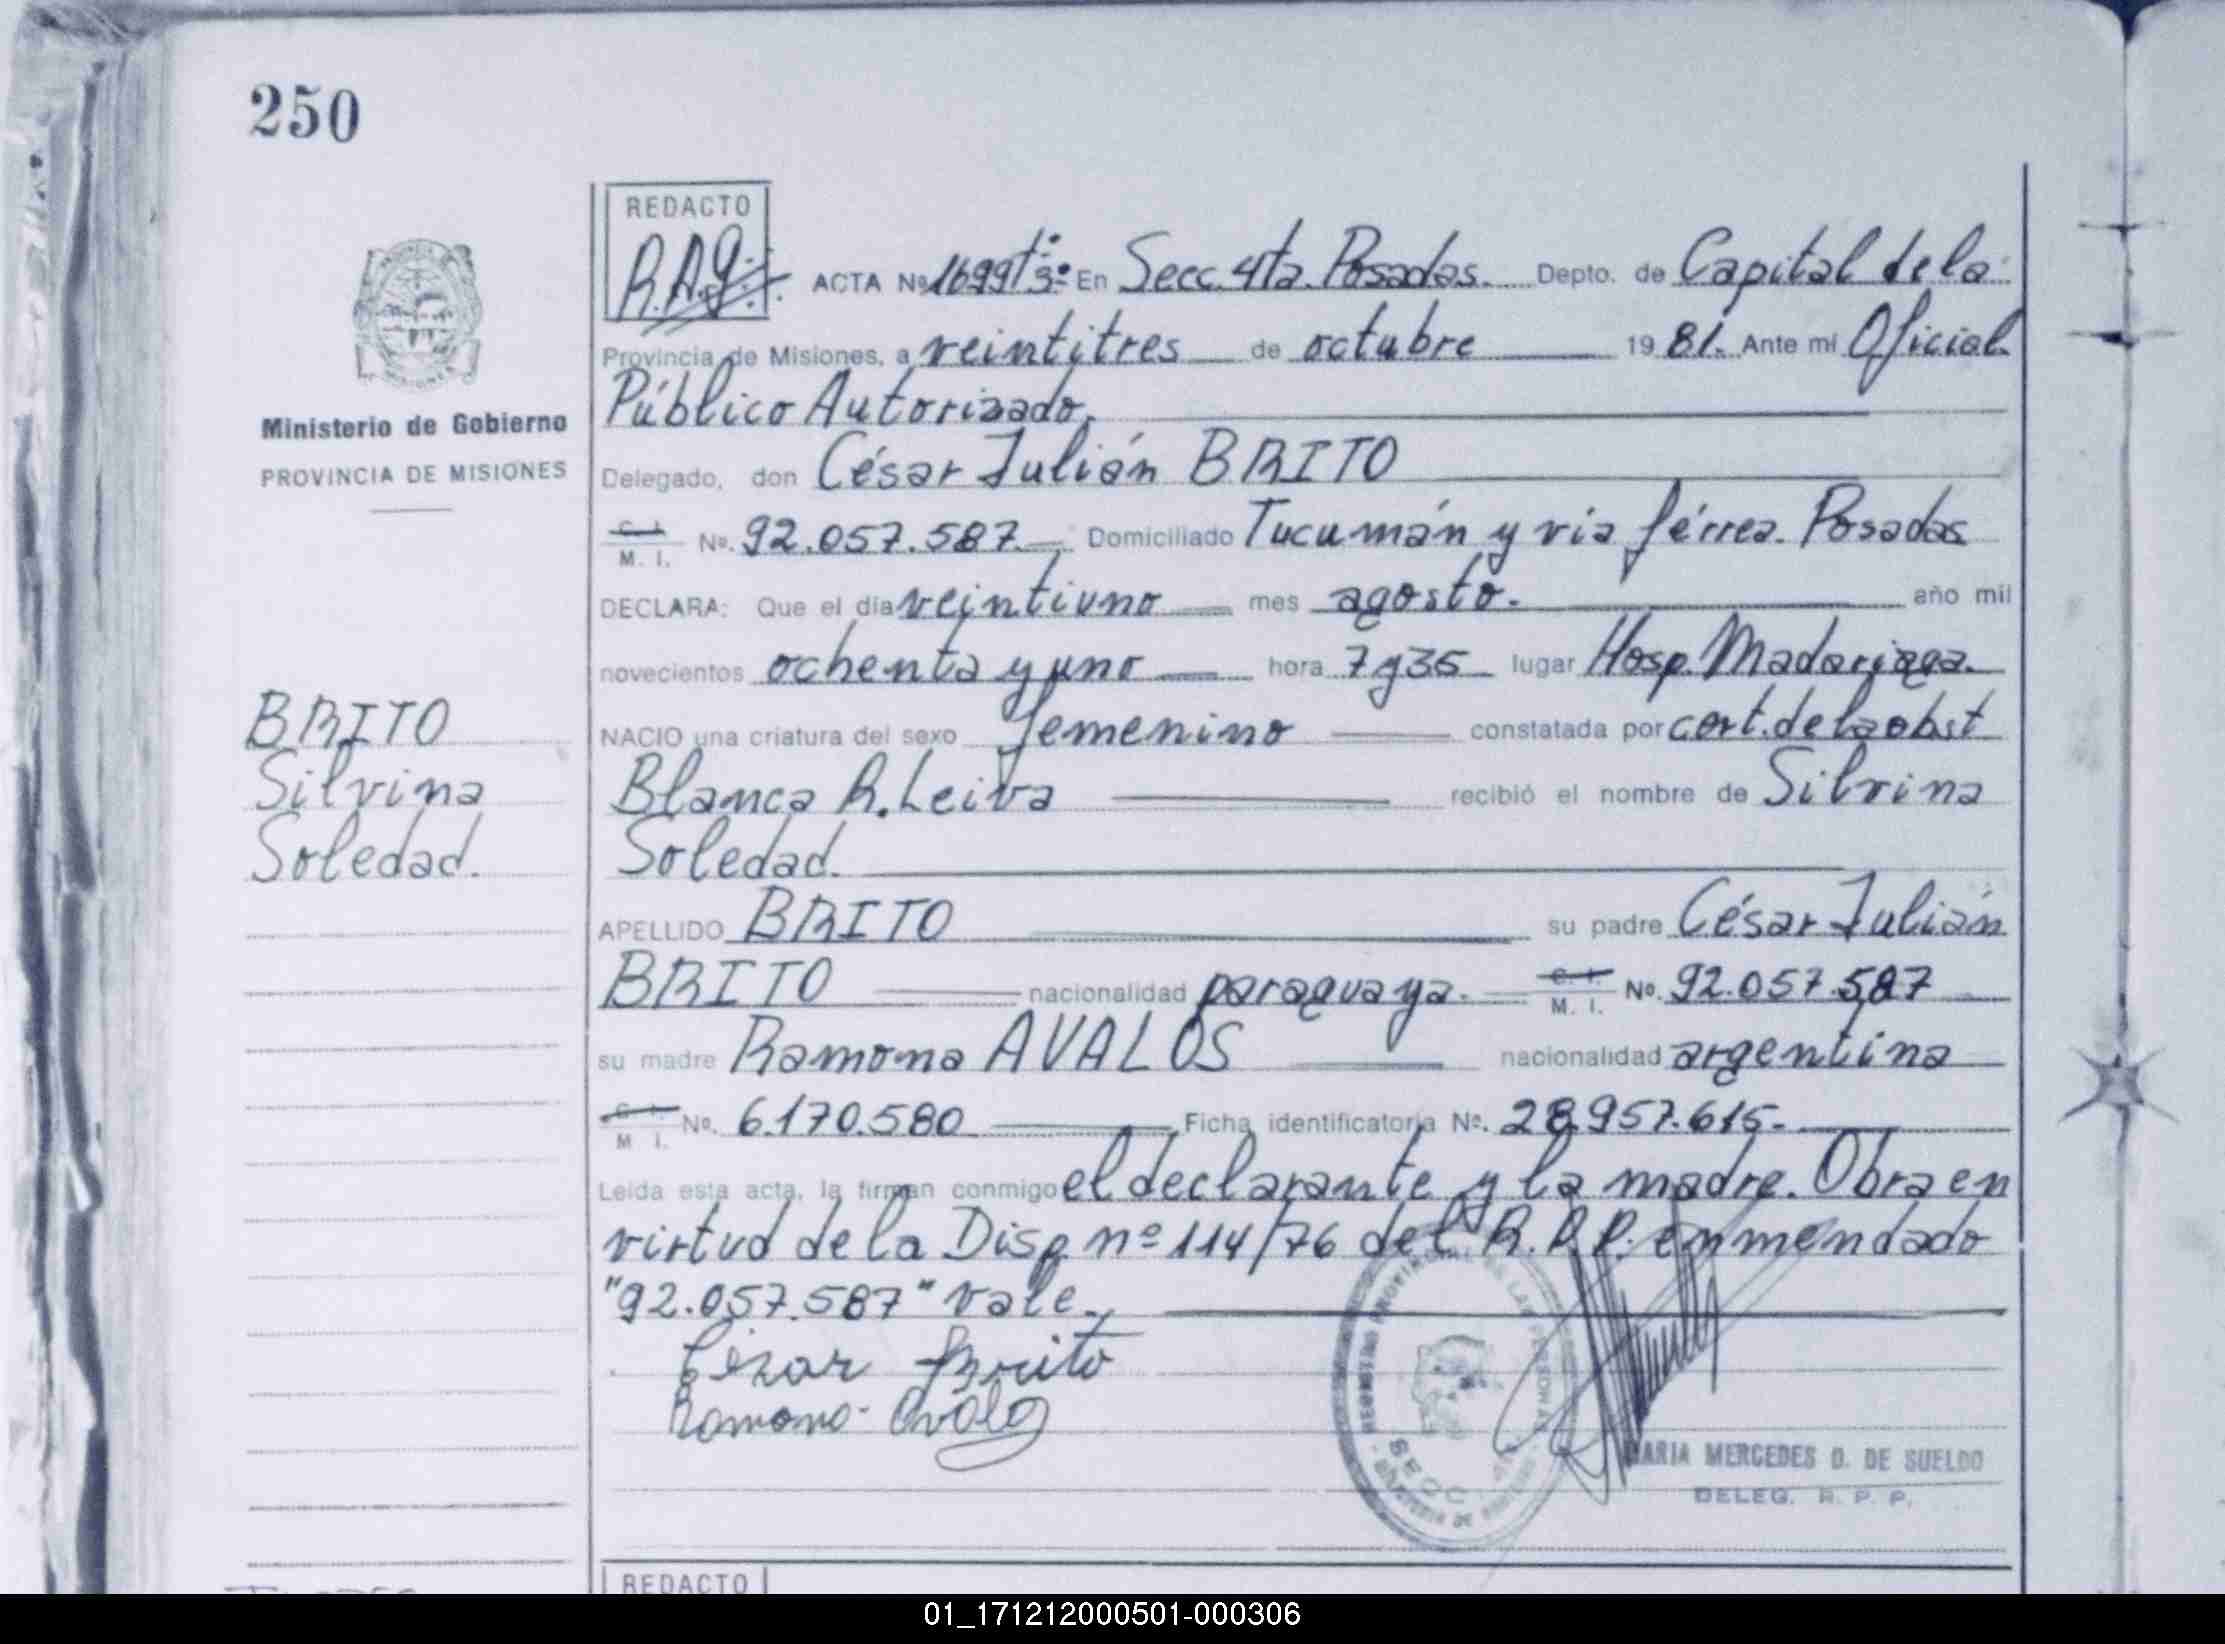 250
REDACTO
R.A.G.
ACTA Nº 1699 tº 3º En Secc. 4ta. Posadas. Depto. de Capital de la
Provincia de Misiones, a veintitres de octubre 19 81. Ante mi Oficial
Público Autorizado.
Ministerio de Gobierno
PROVINCIA DE MISIONES
Delegado, don César Julián BRITO
C. I.
M. I. Nº. 92.057.587. Domiciliado Tucumán y via férrea. Posadas
DECLARA: Que el día veintiuno mes agosto. año mil
novecientos ochenta y uno hora 7 y 35 lugar Hosp. Madariaga.
BRITO
Silvina
Soledad.
NACIO una criatura del sexo femenino constatada por cert. de la obst
Blanca R. Leiva recibió el nombre de Silvina
Soledad.
APELLIDO BRITO su padre César Julián
BRITO nacionalidad paraguaya. C. I. M. I. Nº. 92.057.587
su madre Ramona AVALOS nacionalidad argentina
C. I. M I. Nº. 6.170.580 Ficha identificatoria Nº. 28.957.615.
Leída esta acta, la firman conmigo el declarante y la madre. Obra en
virtud de la Disp. nº 114/76 del R.P.P. enmendado
"92.057.587" vale.
Cesar Brito
Ramona Avalo
REGISTRO PROVINCIAL DE LAS PERSONAS
SECC. 4ta
MARIA MERCEDES D. DE SUELDO
DELEG. R. P. P.
REDACTO
01_171212000501-000306